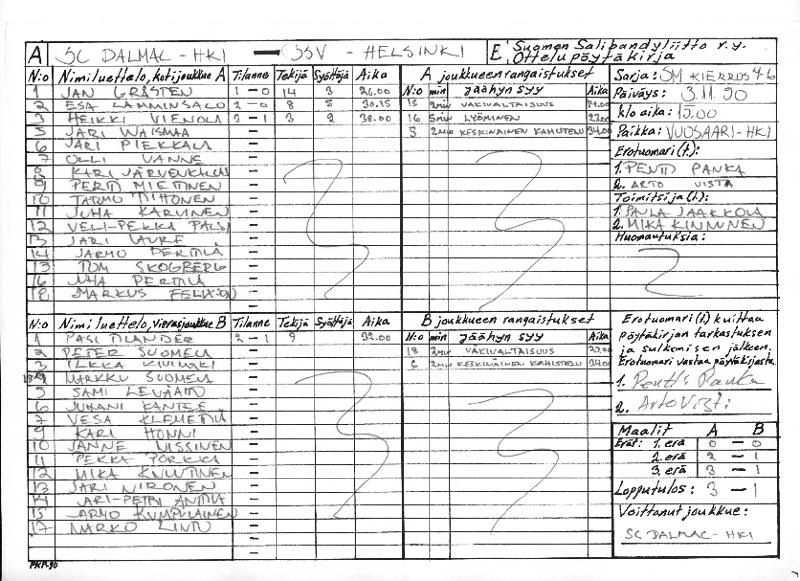 A SC DALMAC - HKI — SSV - HELSINKI E Suomen Salibandyliitto r.y. Ottelupöytäkirja
N:o Nimiluettelo, kotijoukkue A Tilanne Tekijä Syöttäjä Aika
1 JAN GRÅSTEN 1 - 0 14 3 26.00
2 ESA LAMMINSALO 2 - 0 8 5 30.15
3 HEIKKI VIENOLA 3 - 1 3 2 38.00
5 JARI WAISMAA -
6 JARI PIEKKALA -
7 OLLI VANNE -
8 KARI JÄRVENKALLAS -
9 PERTTI MIETTINEN -
10 TARMO TIIHONEN -
11 JUHA KARVINEN -
12 VELI-PEKKA PALSI -
13 JARI LAURE -
14 JARMO PERTTILÄ -
15 TOM SKOGBERG -
16 JUHA PERTTILÄ -
18 MARKUS FELIXSON -
A joukkueen rangaistukset
N:o min jäähyn syy Aika
15 2min VÄKIVALTAISUUS
16 5min LYÖMINEN
5 2min KESKINÄINEN KAHISTELU 34.00
Sarja: SM KIERROS 4-6
Päiväys: 3.11.90
klo aika: 15.00
Paikka: VUOSAARI - HKI
Erotuomari(t):
1. PENTTI PANKA
2. ARTO VISTA
Toimitsija(t):
1. PAULA JAAKKOLA
2. MIKA KINNUNEN
Huomautuksia:
N:o Nimiluettelo, vierasjoukkue B Tilanne Tekijä Syöttäjä Aika
1 PASI TILANDER 2 - 1 9 32.00
2 PETER SUOMELA -
3 ILKKA KIVIMÄKI -
MARKKU SUOMELA -
5 SAMI LEVÄAHO -
6 JUHANI KANTEE -
7 VESA KLEMETTILÄ -
9 KARI HONNI -
10 JANNE NISSINEN -
11 PEKKA PORKKA -
12 MIKA KNUUTINEN -
13 JARI NIRONEN -
14 JARI-PETRI ANTTILA -
15 JARMO KUMPULAINEN -
17 MARKO LINTU -
B joukkueen rangaistukset
N:o min jäähyn syy Aika
18 2min VÄKIVALTAISUUS
6 2min KESKINÄINEN KAHISTELU 34.00
Erotuomari(t) kuittaa
pöytäkirjan tarkastuksen
ja sulkemisen jälkeen.
Erotuomari vastaa pöytäkirjasta.
1. Pentti Panka
2. Arto Vista
Maalit A B
Erät: 1. erä 0 - 0
2. erä 2 - 1
3. erä 3 - 1
Lopputulos: 3 - 1
Voittanut joukkue:
SC DALMAC - HKI
PKP-90